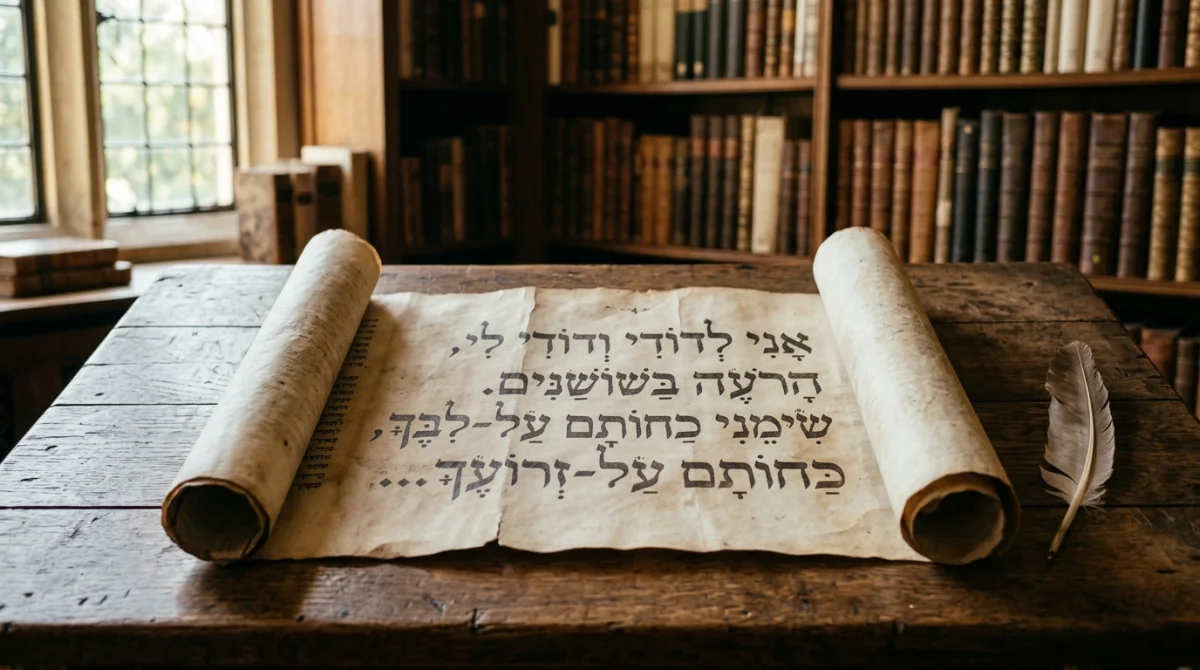 אֲנִי לְדוֹדִי וְדוֹדִי לִי,
הָרֹעֶה בַּשׁוֹשַׁנִּים.
שִׂימֵנִי כַחוֹתָם עַל-לִבֶּךָ,
כַּחוֹתָם עַל-זְרוֹעֶךָ...